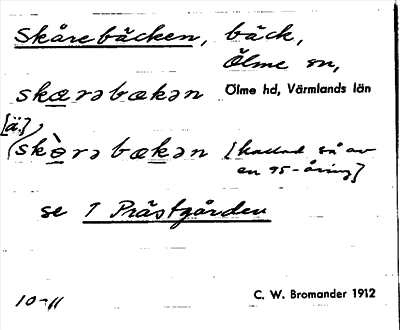 Skårebäcken, bäck,
Ölme sn,
skærə bækən Ölme hd, Värmlands län
[ä.],
(skɵ̀rə bækən [kallad så av
en 95-åring]
se 1 Prästgården
10-11 C. W. Bromander 1912